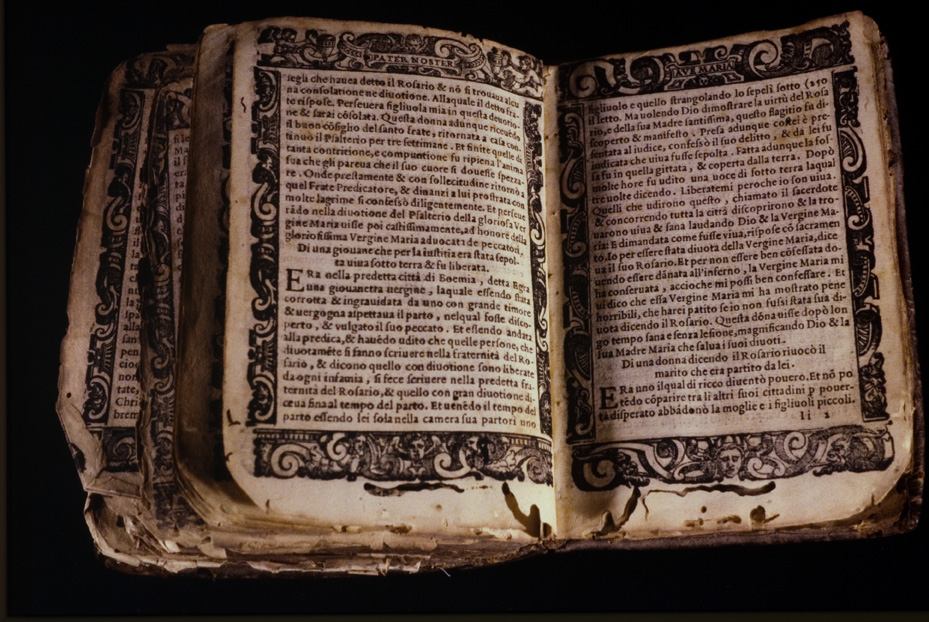 PATER NOSTER
segli che hauea detto il Rosario & nõ si trouaua alcu
na consolatione ne diuotione. Allaquale il detto fra-
te rispose. Perseuera figliuola mia in questa deuotio-
ne & sarai cõsolata. Questa donna adunque riceuẽdo
il buon cõsiglio del santo frate, ritornata a casa con-
tinuò il Psalterio per tre settimane. Et finite quelle di
tanta contritione, e compuntione fu ripiena l'anima
sua che gli pareua che il suo cuore si douesse spezza-
re. Onde prestamente & con sollecitudine ritornò a
quel Frate Predicatore, & dinanzi a lui prostrata con
molte lagrime si confessò diligentemente. Et perseue
rãdo nella diuotione del Psalterio della gloriosa Ver
gine Maria uisse poi castissimamente, ad honore della
gloriosissima Vergine Maria aduocata de peccatori.
Di una giouane che per la iustitia era stata sepol-
ta uiua sotto terra & fu liberata.
ERa nella predetta città di Boemia, detta Egra
una giouanetta uergine, laquale essendo stata
corrotta & ingrauidata da uno con grande timore
& uergogna aspettaua il parto, nelqual fosse disco-
perto, & vulgato il suo peccato. Et essendo andata
alla predica, & hauẽdo udito che quelle persone, che
diuotamẽte si fanno scriuere nella fraternità del Ro-
sario, & dicono quello con diuotione sono liberate
da ogni infamia, si fece scriuere nella predetta fra-
ternità del Rosario, & quello con gran diuotione di-
ceua fina al tempo del parto. Et uenẽdo il tempo del
parto essendo lei sola nella camera sua partorì uno
AVE MARIA
figliuolo e quello strangolando lo sepelì sotto
il letto. Ma uolendo Dio dimostrare la uirtù del Rosa
rio, e della sua Madre santissima, questo flagitio fu di-
scoperto & manifesto. Presa adunque costei è pre-
sentata al iudice, confessò il suo delitto, & da lei fu
indicata che uiua fusse sepolta. Fatta adunque la fos-
sa fu in quella gittata, & coperta dalla terra. Dopò
molte hore fu udito una uoce di sotto terra laqual
tre uolte dicendo. Liberatemi peroche io son uiua.
Quelli che udirono questo, chiamato il sacerdote
& concorrendo tutta la città discoprirono & la tro-
uarono uiua & sana laudando Dio & la Vergine Ma-
ria: E dimandata come fusse viua, rispose cõ sacramen
to. Io per essere stata diuota della Vergine Maria, dice
ua il suo Rosario. Et per non essere ben cõfessata do-
uendo essere dãnata all'inferno, la Vergine Maria mi
ha conseruata, accioche mi possi ben confessare. Et
ui dico che essa Vergine Maria mi ha mostrato pene
horribili, che harei patito se io non fussi stata sua di-
uota dicendo il Rosario. Questa dõna uisse dopò lon
go tempo sana e senza lesione, magnificando Dio & la
sua Madre Maria che salua i suoi diuoti.
Di una donna dicendo il Rosario riuocò il
marito che era partito da lei.
ERa uno ilqual di ricco diuentò pouero. Et nõ po
tẽdo cõparire tra li altri suoi cittadini p pouer-
tà disperato abbãdonò la moglie e i figliuoli piccoli.